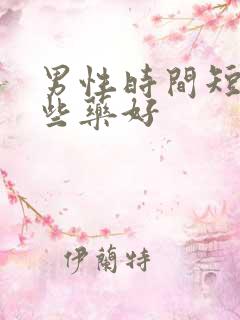 男性時間短
些藥好
伊蘭特